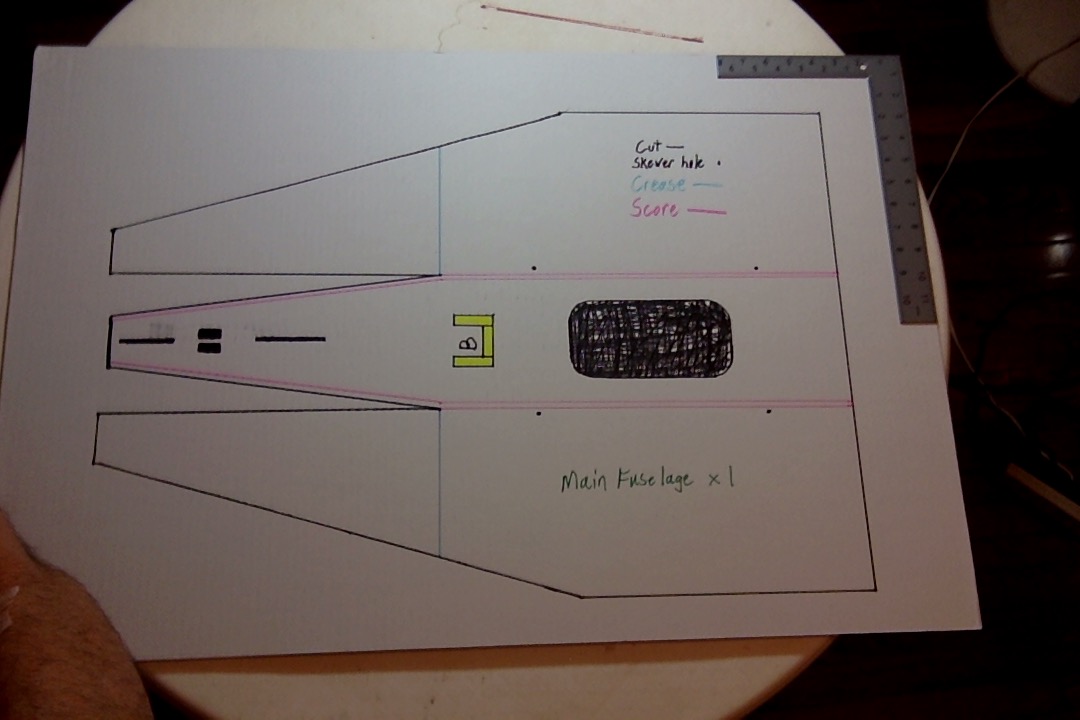 Cut —
Skewer hole •
Crease —
Score —
B
Main Fuselage x 1